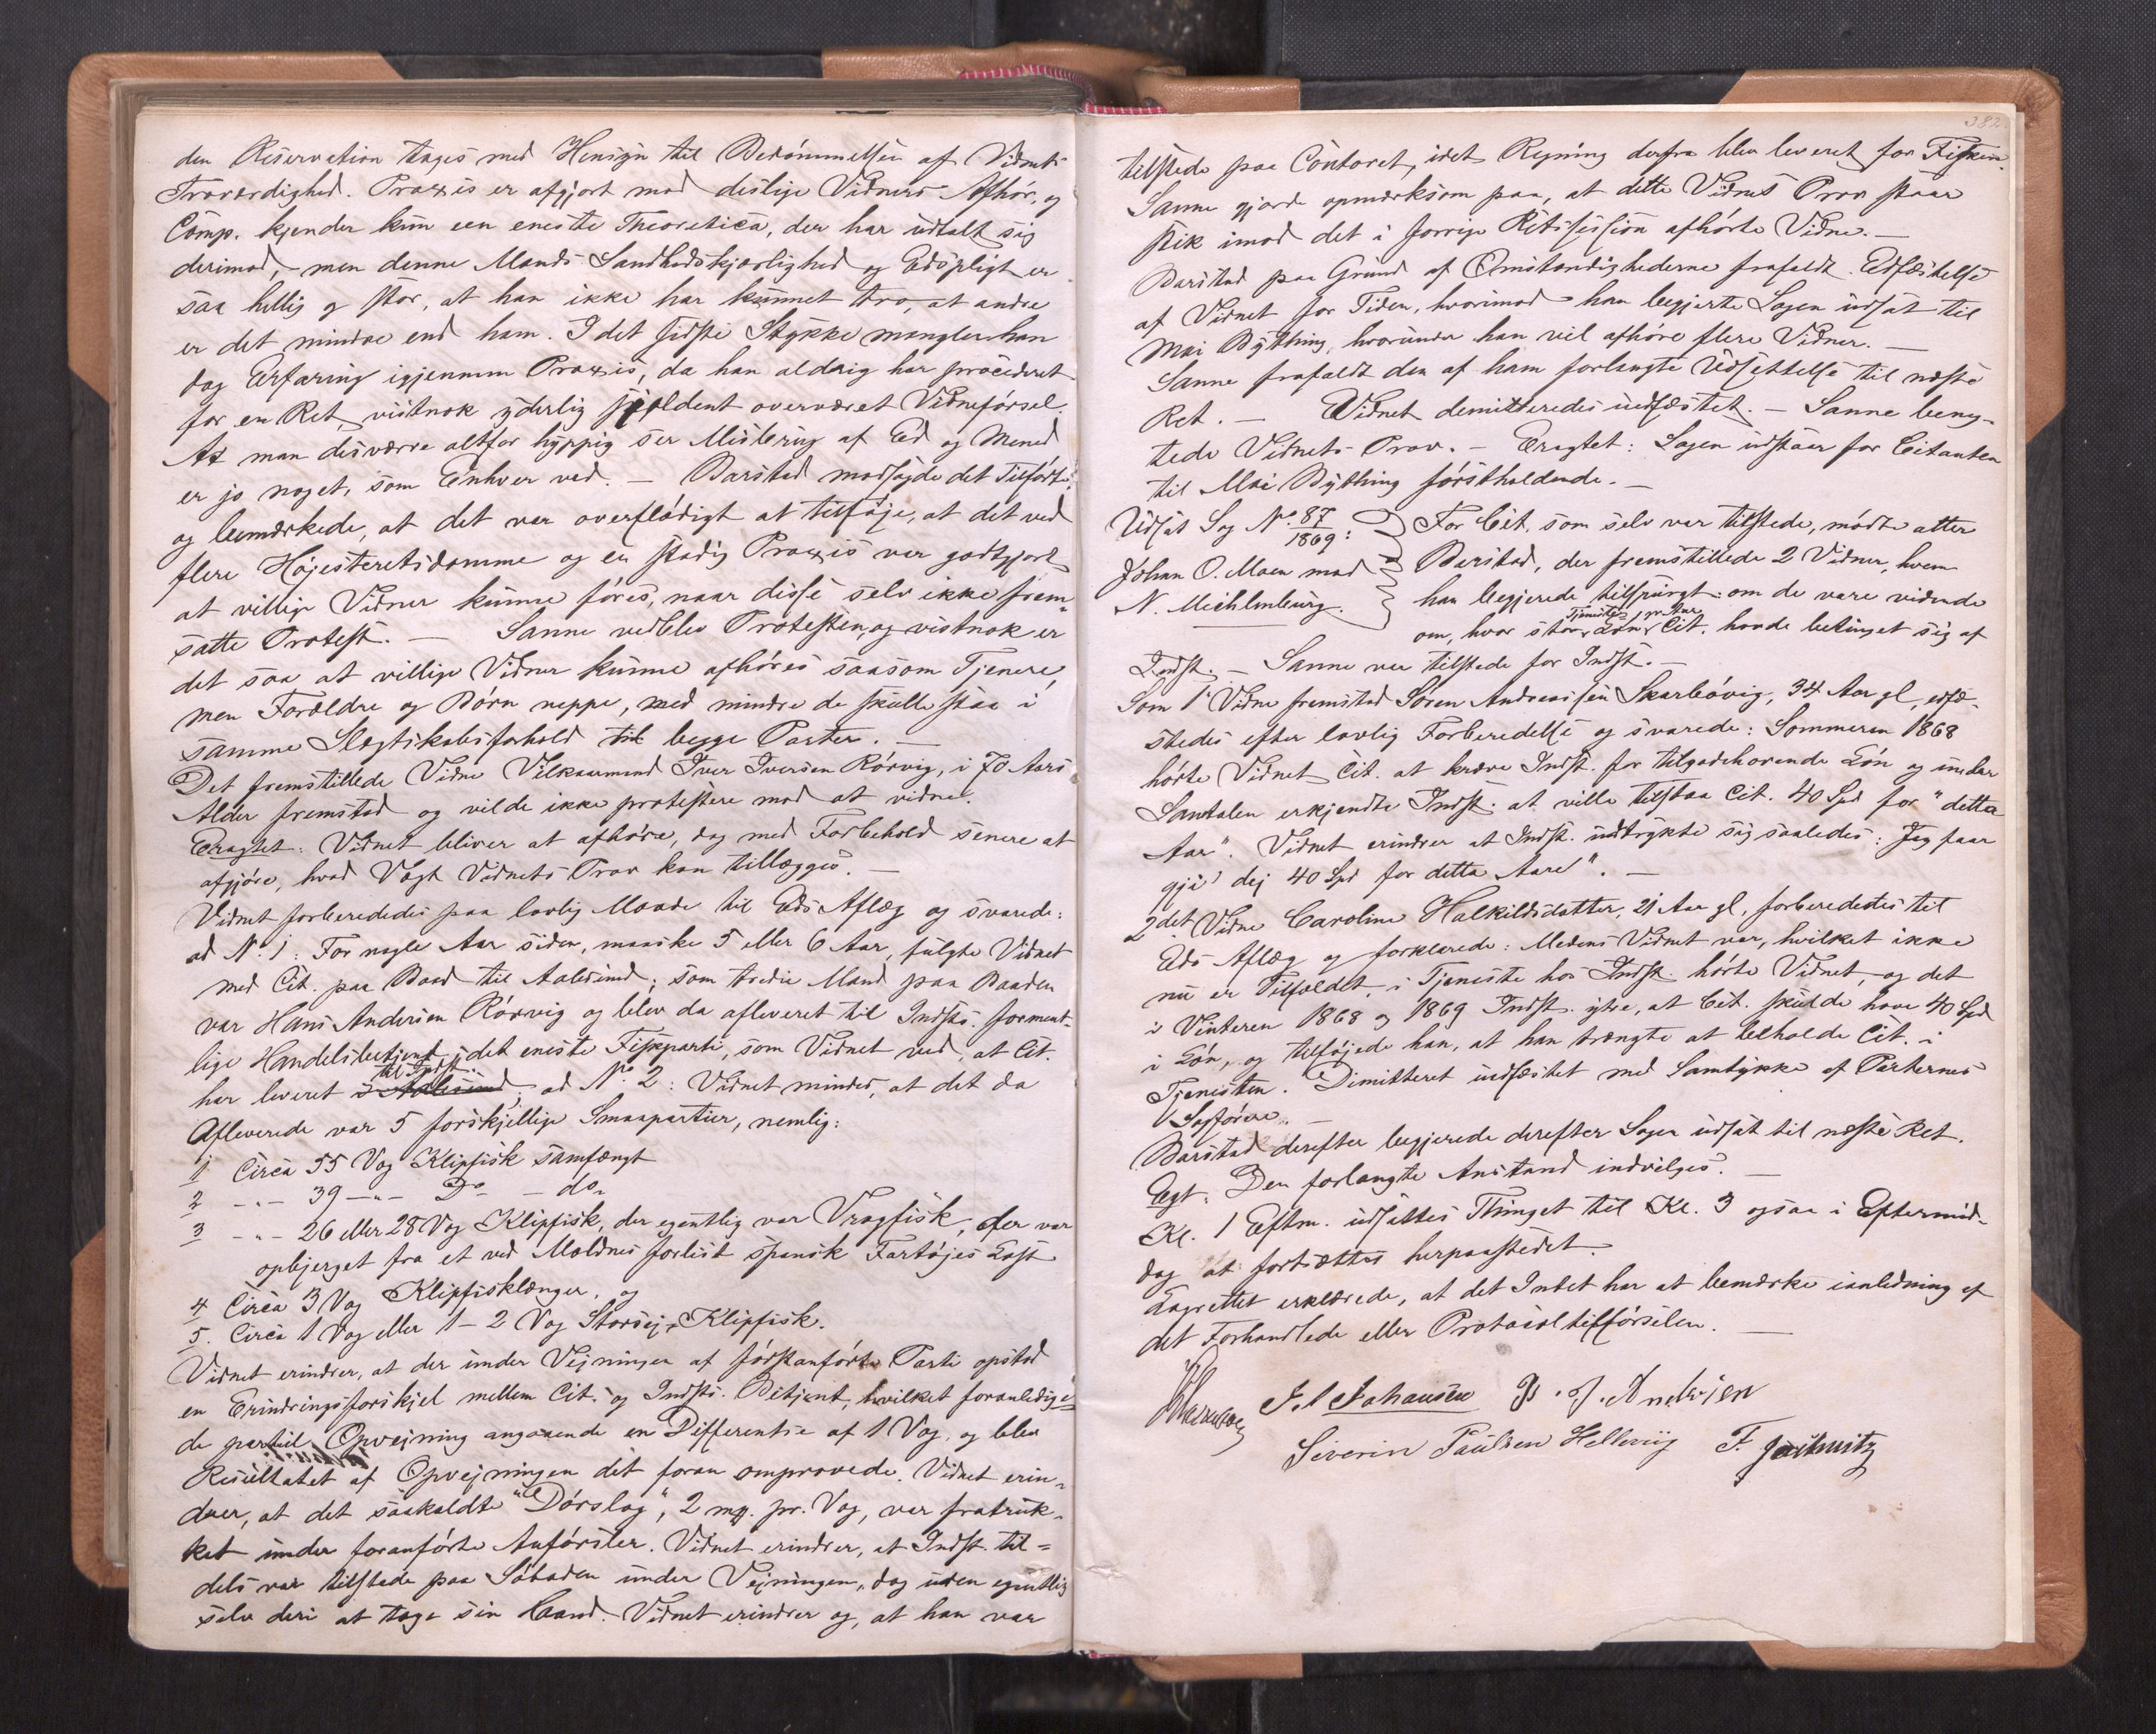 den Reservation tages med Hensyn til Bedömmelsen af Vidnets
Troværdighed. Praxis er afgjort mod deslige Vidners Afhör, og
Comp. kjender kun een eneste Theoretica, der har udtalt sig
derimod, - men denne Mands Sandhedskjærlighed og Edspligt er
saa hellig og stor, at han ikke har kunnet tro, at andre
er det mindre end ham. I det sidste Stykke mangler han
dog Erfaring igjennem Praxis, da han aldrig har procederet
for en Ret, vistnok yderlig sjeldent overværet Vidneförsel.
At man desværre altfor hyppig ser Misbrug af Ed og Mened
er jo noget, som Enhver ved. — Barstad modsagde det Tilförte,
og bemærkede, at det var overflödigt at tilföje, at det ved
flere Höjesteretsdomme og en stadig Praxis var godtgjort
at villige Vidner kunne föres, naar disse selv ikke frem-
satte Protest. — Sanne vedblev Protesten, og vistnok er
det saa at villige Vidner kunne afhöres saasom Tjenere,
men Forældre og Börn neppe, med mindre de skulle staa i
samme Slægtskabsforhold til begge Parter. —
Det fremstillede Vidne Vilkaarmand Iver Iversen Rörvig, i 70 Aars
Alder fremstod og vilde ikke protestere mod at vidne.
Eragtet: Vidnet bliver at afhöre, dog med Forbehold senere at
afgjöre, hvad Vægt Vidnets Prov kan tillægges. —
Vidnet forberededes paa lovlig Maade til Eds Aflæg og svarede:
ad No. 1: For nogle Aar siden, maaske 5 eller 6 Aar, fulgte Vidnet
med Cit. paa Baad til Aalesund; som tredie Mand paa Baaden
var Hans Andersen Rörvig og blev da afleveret til Indsts. forment-
lige Handelsbetjent, det eneste Fiskeparti, som Vidnet ved, at Cit.
har leveret i Aalesund til Indst.; ad No. 2: Vidnet mindes, at det da
Afleverede var 5 forskjellige Smaapartier, nemlig:
1 Circa 55 Vog Klipfisk samfængt
2 -"- 39 -"- Do - do
3 -"- 26 eller 28 Vog Klipfisk, der egentlig var Vragfisk, der var
opbjerget fra et ved Moldnes forlist spansk Fartöjes Last
4 Circa 3 Vog Klipfisklænger, og
5. Circa 1 Vog eller 1-2 Vog Storsej-Klipfisk.
Vidnet erindrer, at der under Vejningen af förstanförte Parti opstod
en Erindringsforskjel mellem Cit. og Indsts. Betjent, hvilket foranledige-
de partiel Opvejning angaaende en Differentse af 1 Vog, og blev
Resultatet af Opvejningen det foran omprovede. Vidnet erin-
drer, at det saakaldte "Dörslag", 2 mg. pr. Vog, var fratruk-
ket under foranförte Anförsler. Vidnet erindrer, at Indst. til-
dels var tilstede paa Söboden under Vejningen, dog uden egentlig
selv deri at tage sin Haand. Vidnet erindrer og, at han var
382
tilstede paa Contoret, idet Regning derfra blev leveret for Fisken.
Sanne gjorde opmærksom paa, at dette Vidnes Prov staar
stik imod det i forrige Retssession afhörte Vidne. —
Barstad paa Grund af Omstændighederne frafaldt Edfæstelse
af Vidnet for Tiden, hvorimod han begjerte Sagen udsat til
Mai Bything, hvorunder han vil afhöre flere Vidner. —
Sanne frafaldt den af ham forlangte Udsættelse til næste
Ret. — Vidnet demitteredes uedfæstet. — Sanne beny-
tede Vidnets Prov. — Eragtet: Sagen udstaar for Citanten
til Mai Bything förstholdende. —
Udsat Sag No. 87/1869:
Johan O. Moen mod
N. Mechlenburg.
For Cit. som selv var tilstede, mödte atter
Barstad, der fremstillede 2 Vidner, hvem
han begjerede tilspurgt: om de vare vidende
om, hvor stor Tjeneste-Lön pr. Aar Cit. havde betinget sig af
Indst. — Sanne var tilstede for Indst. —
Som 1te Vidne fremstod Sören Andreassen Skarbövig, 34 Aar gl, edfæ-
stedes efter lovlig Forberedelse og svarede: Sommeren 1868
hörte Vidnet Cit. at kræve Indst. for tilgodehavende Lön og under
Samtalen erkjendte Indst. at ville tilstaa Cit. 40 Spd for "detta
Aar". Vidnet erindrer at Indst. udtrykte sig saaledes: Jeg faar
gje' dej 40 Spd for detta Aare". —
2det Vidne Caroline Halkildsdatter, 21 Aar gl, forberededes til
Eds Aflæg og forklarede: Medens Vidnet var, hvilket ikke
nu er Tilfældet, i Tjeneste hos Indst. hörte Vidnet, og det
i Vinteren 1868 og 1869 Indst. ytre, at Cit. skulde have 40 Spd
i Lön, og tilföjede han, at han trængte at beholde Cit. i
Tjenesten. Dimitteret uedfæstet med Samtykke af Parternes
Sagförere. —
Barstad derefter begjerede derefter Sagen udsat til næste Ret.
Egt: Den forlangte Anstand indvilges. —
Kl. 1 Eftm. udsattes Thinget til Kl. 3 ogsaa i Eftermid-
dag at fortsættes herpaastedet.
Lagrettet erklærede, at det Intet har at bemærke ianledning af
det Forhandlede eller Protocoltilförselen. —
J. A Johansen P. J. Andersen
Severin Paulsen Hellevig F.